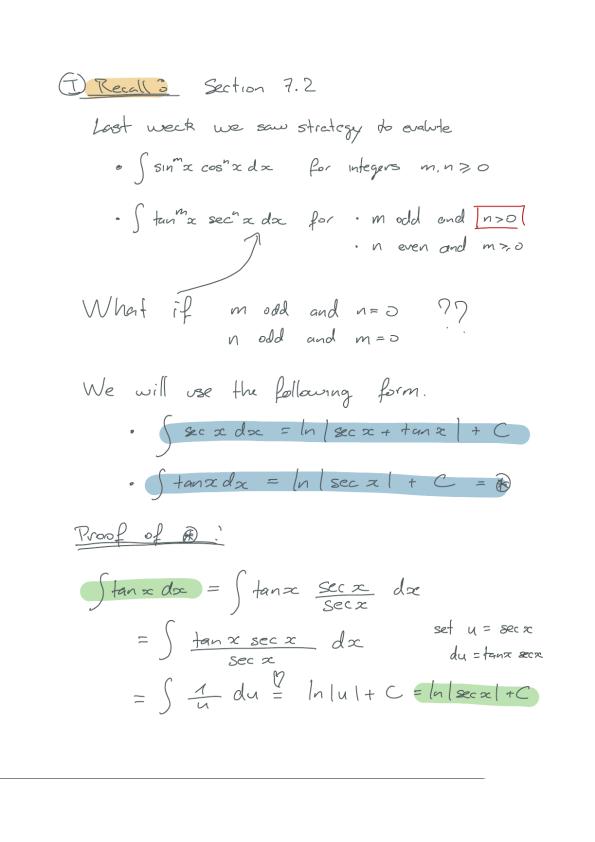 ① Recall : Section 7.2
Last week we saw strategy to evaluate
• ∫ sin^m x cos^n x dx for integers m, n ⩾ 0
• ∫ tan^m x sec^n x dx for • m odd and n > 0
• n even and m ⩾ 0
What if m odd and n = 0 ??
n odd and m = 0
We will use the following form.
• ∫ sec x dx = ln | sec x + tan x | + C
• ∫ tan x dx = ln | sec x | + C = ⊛
Proof of ⊛ :
∫ tan x dx = ∫ tan x (sec x / sec x) dx
= ∫ (tan x sec x / sec x) dx set u = sec x
du = tan x sec x
= ∫ 1/u du =♡ ln |u| + C = ln | sec x | + C